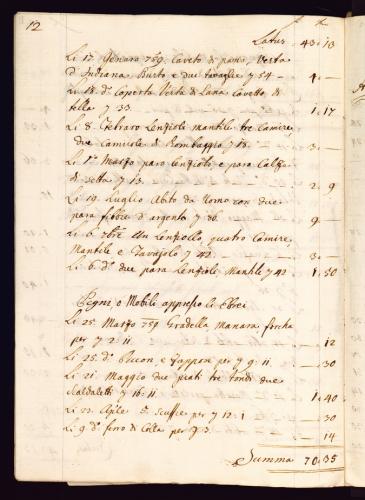 12
Latus — 43 . 13
Li 17. Genaro 759. Caveto di pano, Vesta
d'Indiana Busto e due tavaglie 7 54 — 4 . —
Li 18. d.º Coperta Verde di Lana Cavetto di
tella 7 33. 1 . 17
Li 8. Febraro Lenzioli mantile tre Camire,
due Camisole di Bombaggio 7 18. 3 . —
Li 1.º Marzo paro lenzioli e para Calze
di setta 7 13. 2 . 9
Li 19. Luglio Abito da Homo con due
para fibre d'argento 7 86. 9 —
Li 6. Un Lenziollo, quattro Camire
Mantile e Tavajolo 7 42. 3 . —
Li 6. d.º due para Lenzioli Mantile 7 42. 1 . 50
Pegni, o Mobili appresso li Ebrei
Li 25. Marzo 759. Gradella manara, forcha
per 7 2 : 11. — 12
Li 25. d.º e per 7 9 : 11. — 30
Li 21. Maggio due piati tre tondi due
Scaldaletti 7 16 : 11. 1 . 40
Li 23. Aprile 5. Scuffie per 7 12 : 1 — 30
Li 9 d.º ferro di per 7 3. — 14
Summa 70 . 35